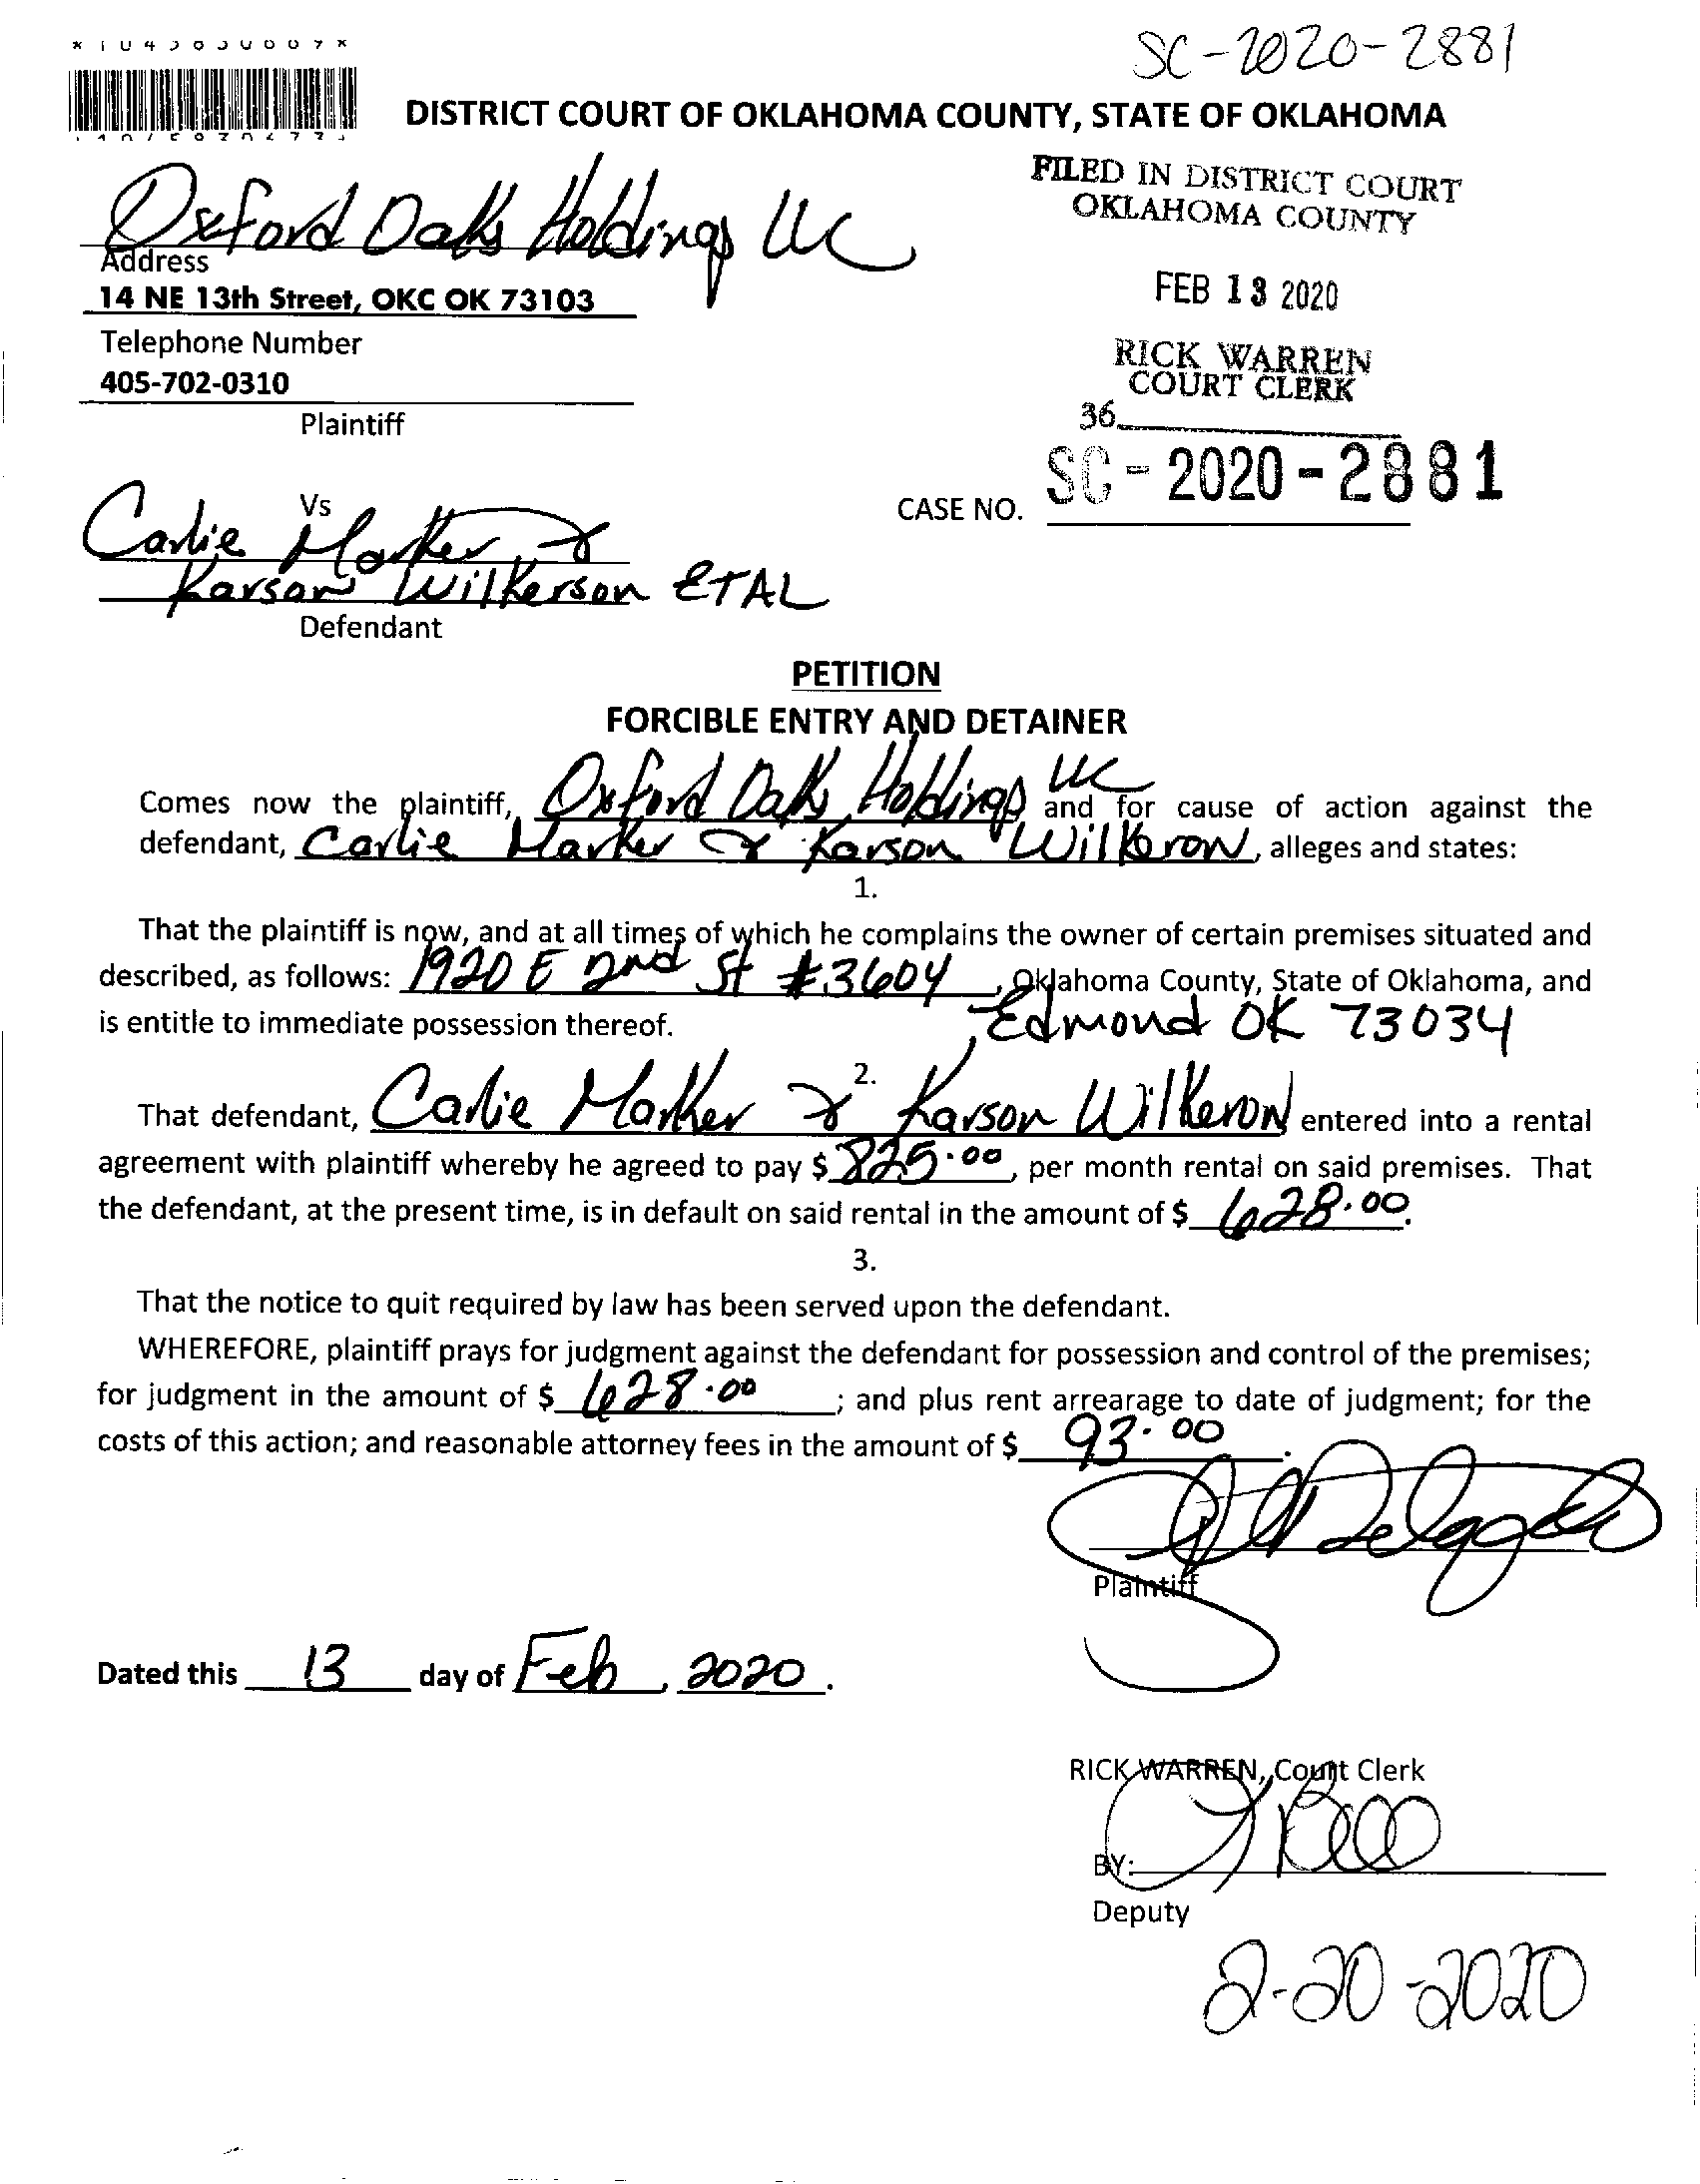 SC-2020-2881
DISTRICT COURT OF OKLAHOMA COUNTY, STATE OF OKLAHOMA
FILED IN DISTRICT COURT
OKLAHOMA COUNTY
FEB 13 2020
RICK WARREN
COURT CLERK
36
Oxford Oaks Holdings LLC
Address
14 NE 13th Street, OKC OK 73103
Telephone Number
405-702-0310
Plaintiff
CASE NO. SC-2020-2881
Vs
Carlie Marker &
Karson Wilkerson ETAL
Defendant
PETITION
FORCIBLE ENTRY AND DETAINER
Comes now the plaintiff, Oxford Oaks Holdings LLC and for cause of action against the
defendant, Carlie Marker & Karson Wilkerson, alleges and states:
1.
That the plaintiff is now, and at all times of which he complains the owner of certain premises situated and
described, as follows: 1920 E 2nd St #3604, Oklahoma County, State of Oklahoma, and
is entitle to immediate possession thereof. Edmond OK 73034
2.
That defendant, Carlie Marker & Karson Wilkerson entered into a rental
agreement with plaintiff whereby he agreed to pay $ 825.00, per month rental on said premises. That
the defendant, at the present time, is in default on said rental in the amount of $ 628.00.
3.
That the notice to quit required by law has been served upon the defendant.
WHEREFORE, plaintiff prays for judgment against the defendant for possession and control of the premises;
for judgment in the amount of $ 628.00; and plus rent arrearage to date of judgment; for the
costs of this action; and reasonable attorney fees in the amount of $ 93.00.
Plaintiff
Dated this 13 day of Feb, 2020.
RICK WARREN, Court Clerk
BY:
Deputy
2-20-2020